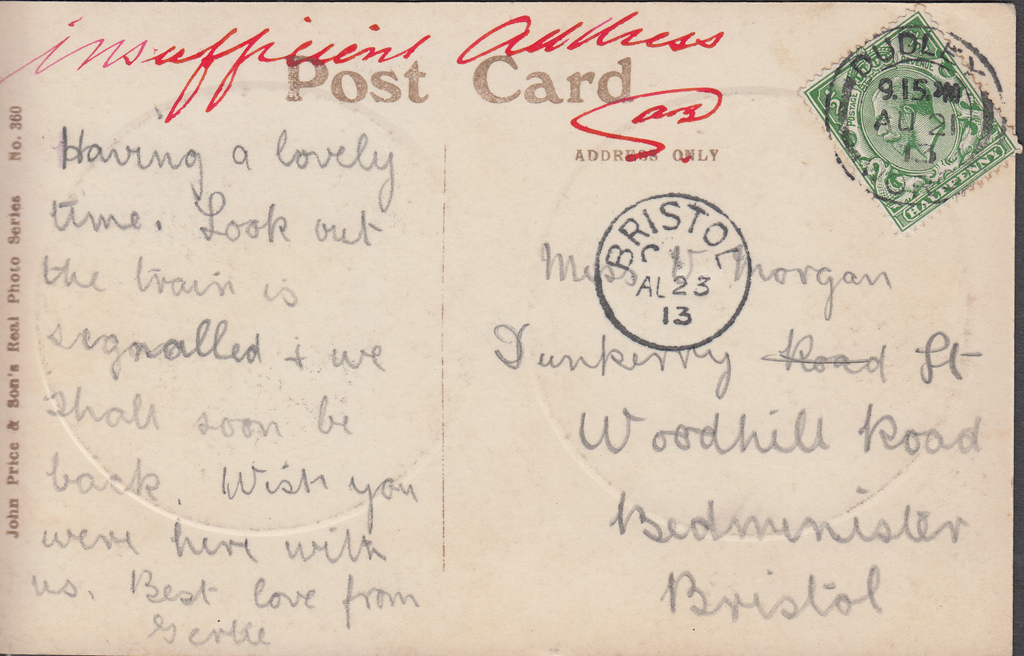 insufficient Address
Post Card
ADDRESS ONLY
John Price & Son's Real Photo Series No. 360
DUDLEY
9.15 PM
AU 21
13
HALFPENNY
BRISTOL
AU 23
13
Having a lovely
time. Look out
the train is
signalled + we
shall soon be
back. Wish you
were here with
us. Best love from
Gertie
Miss V Morgan
Dunkerry Road St
Woodhill Road
Bedminister
Bristol